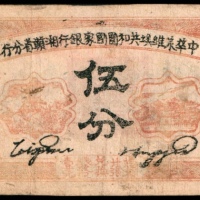 中華蘇維埃共和國國家銀行湘贛省分行
伍
分